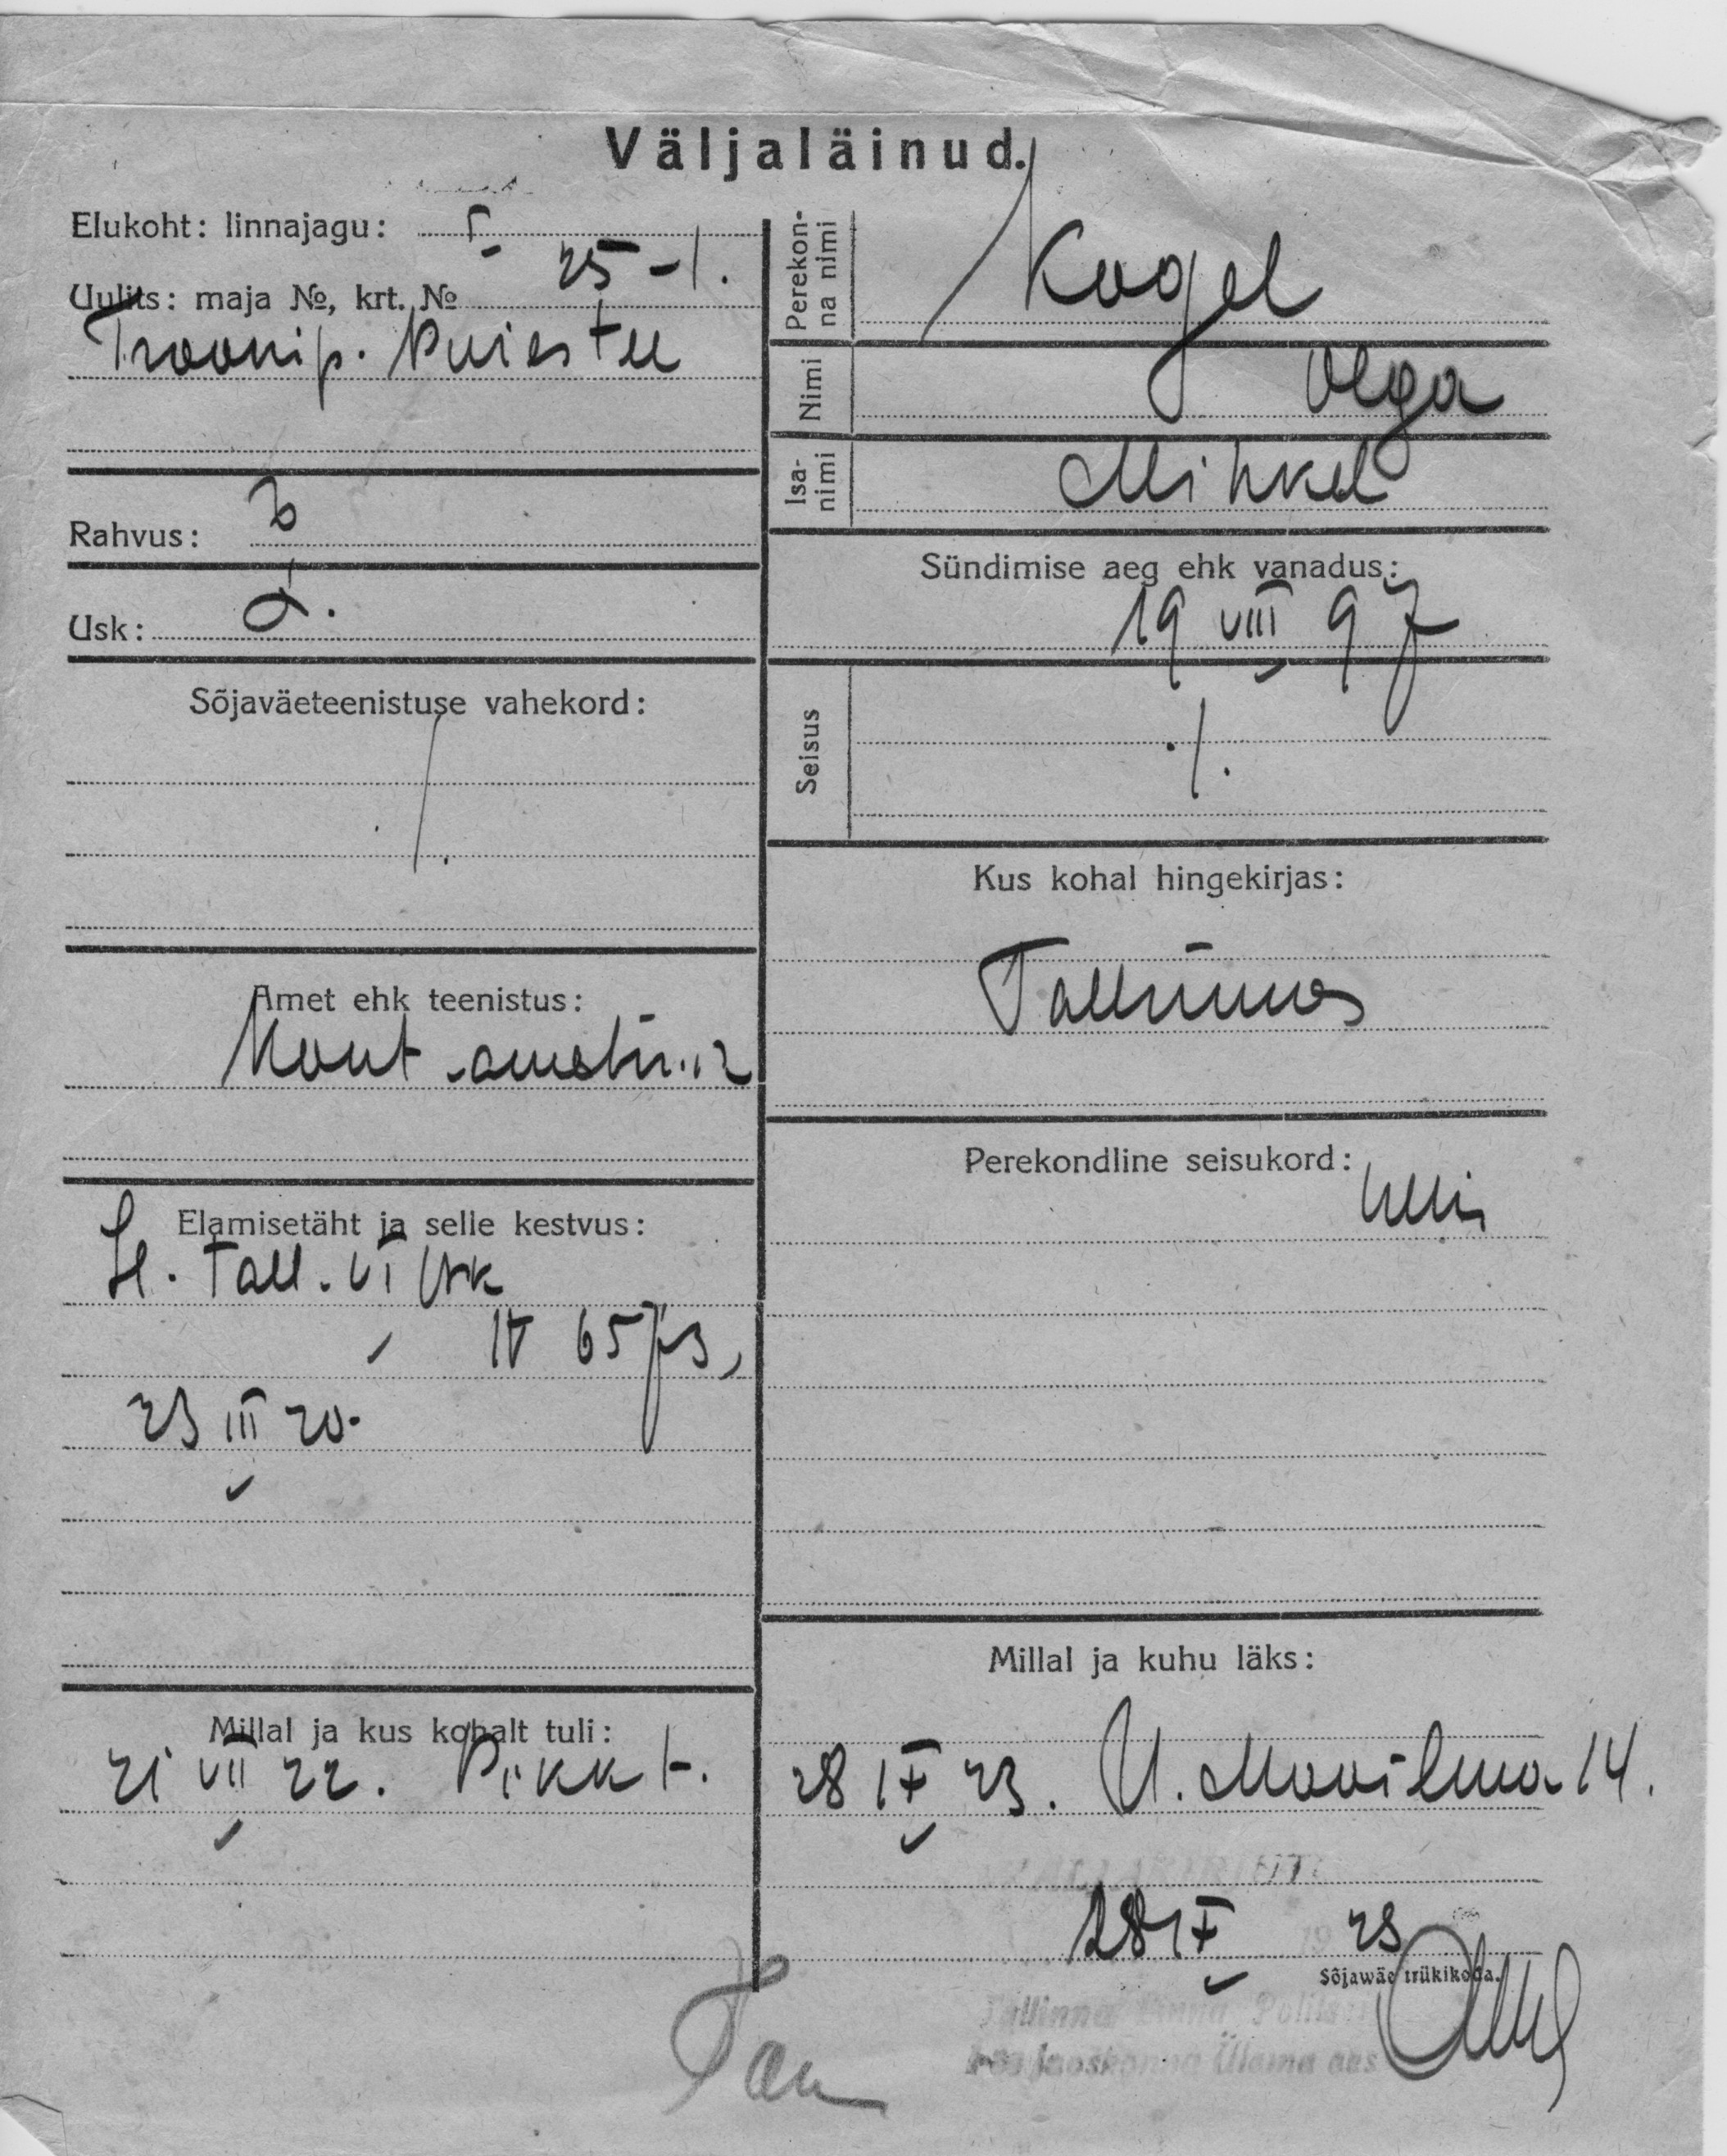 Väljaläinud.
Elukoht: linnajagu: I
Uulits: maja №, krt. № 25-1.
Troonip. Puiestee
Rahvus: E
Usk:
Sõjaväeteenistuse vahekord:
Amet ehk teenistus:
Kont. ametn.
Elamisetäht ja selle kestvus:
Tall. VI jsk
23 III 20.
Millal ja kus kohalt tuli:
21 VII 22. Pikk t.
Perekonna nimi Kogel
Nimi Olga
Isanimi Mihkel
Sündimise aeg ehk vanadus:
19 VIII 97
Seisus ./.
Kus kohal hingekirjas:
Tallinnas
Perekondline seisukord:
Millal ja kuhu läks:
28 IX 23. U. Maailma 14.
28 IX 1923
Sõjawäe trükikoda.
Tallinna Linna Politsei
jaoskonna Ülema aas